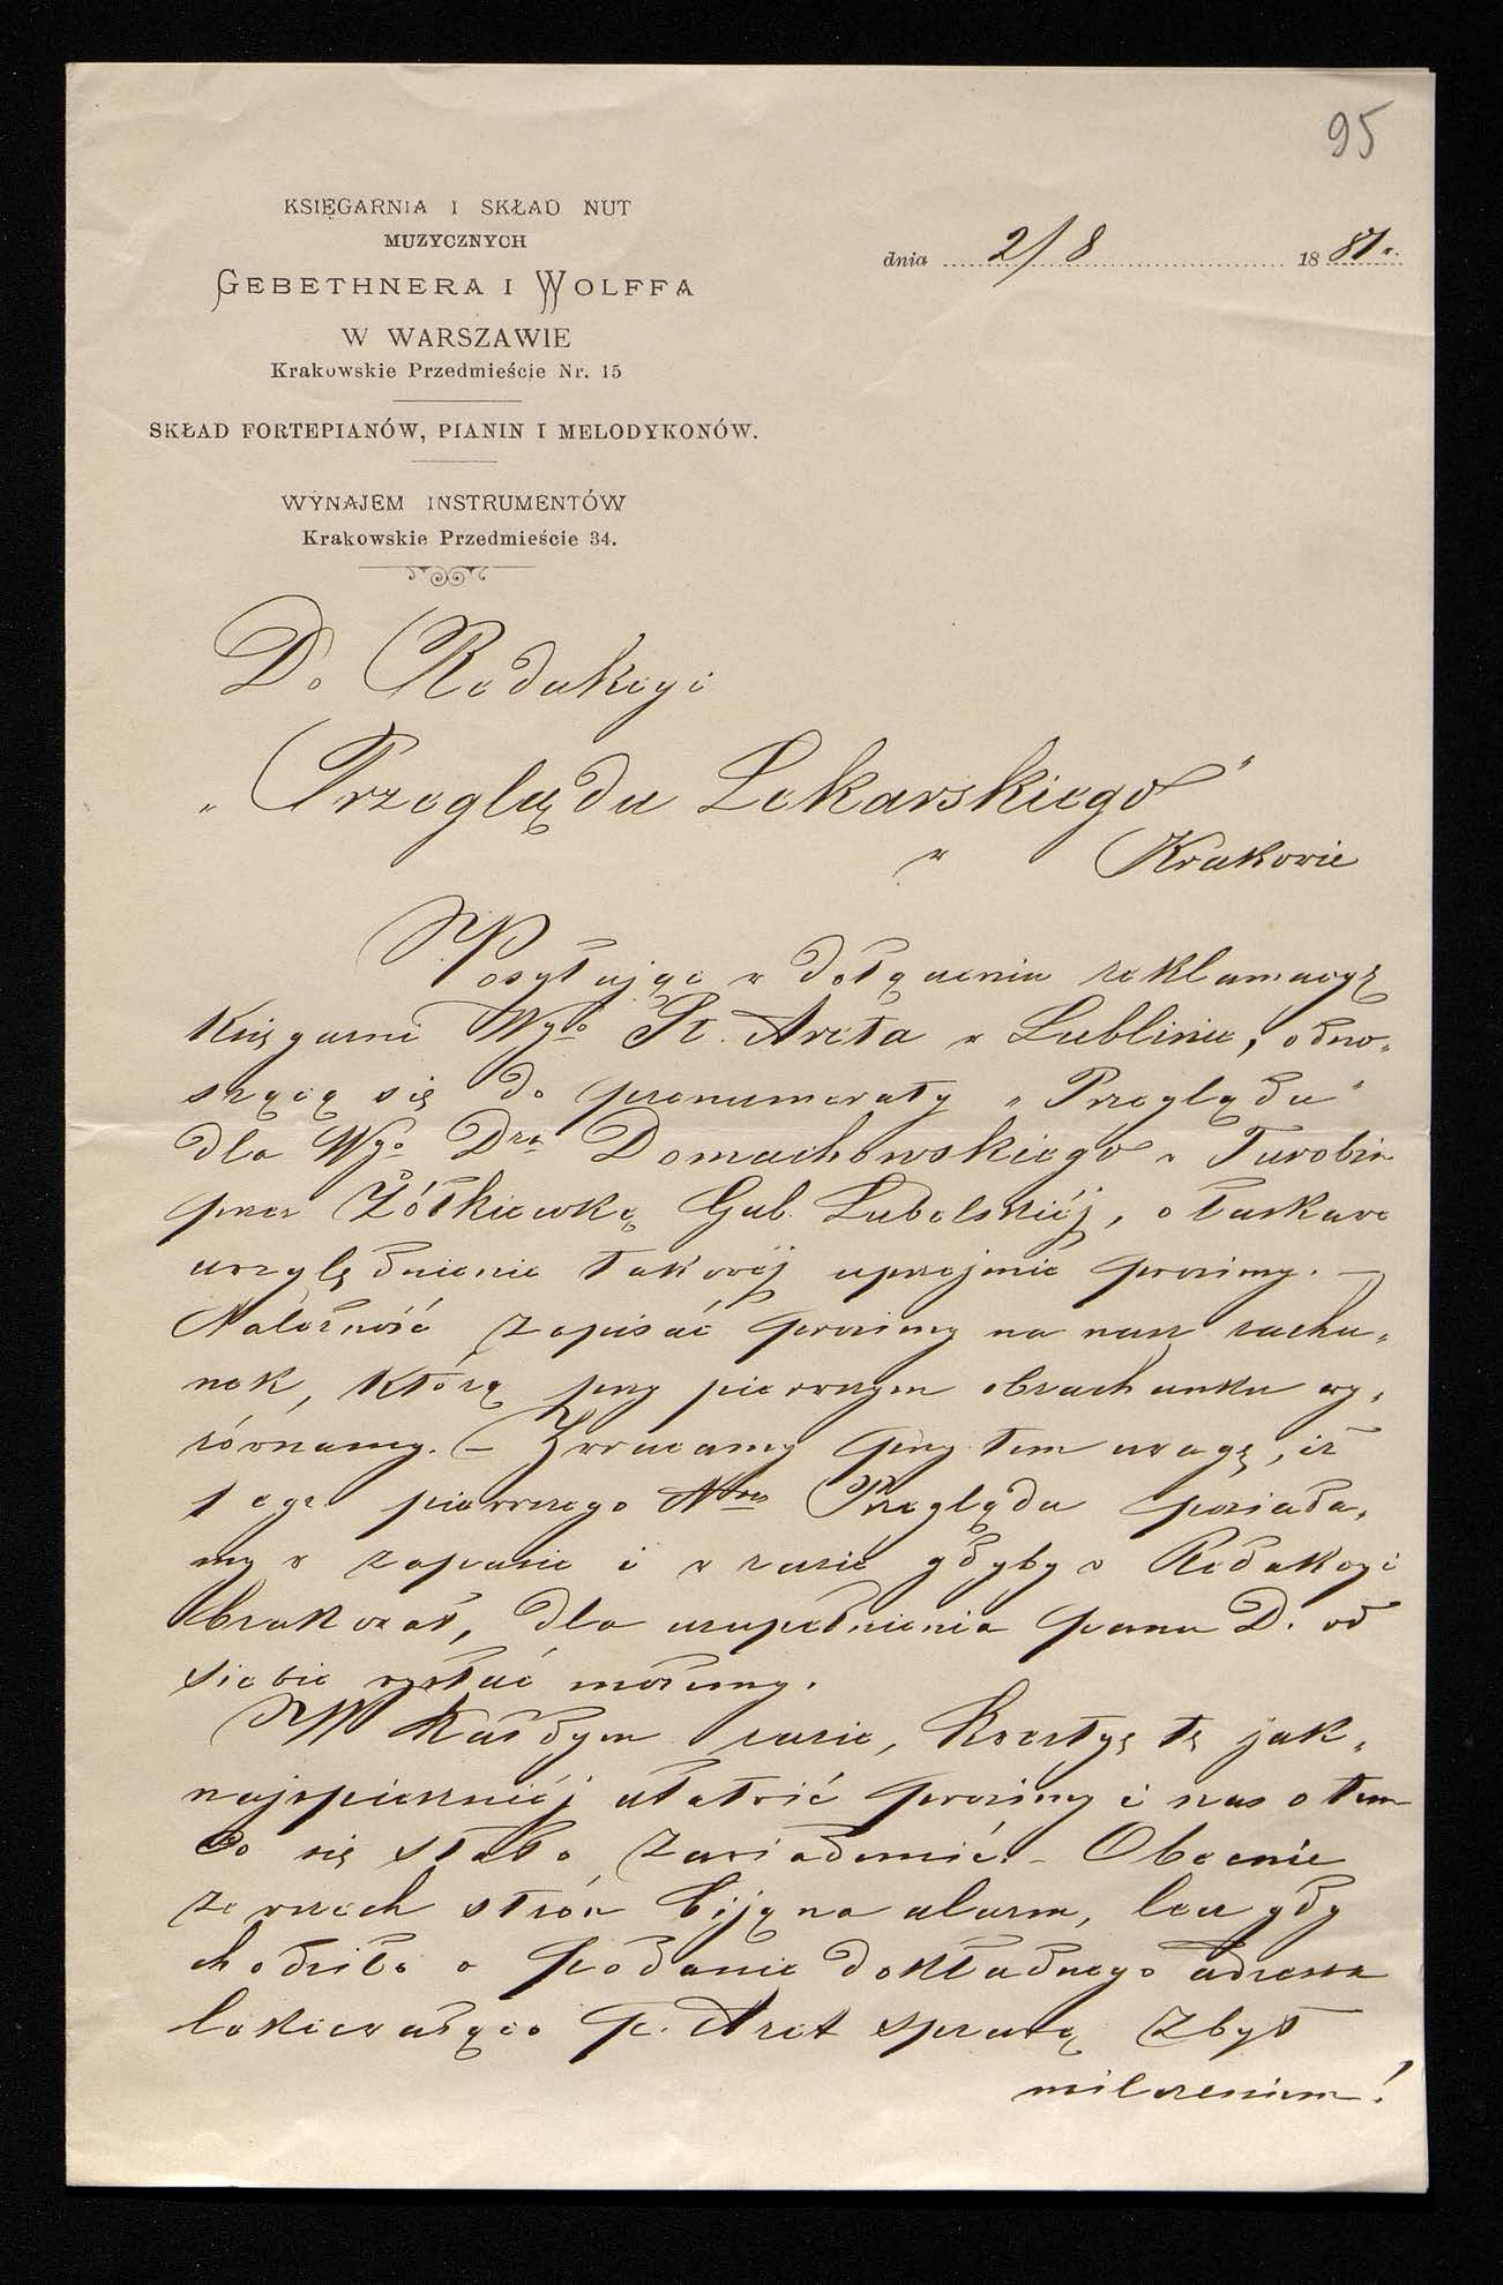 95
KSIĘGARNIA I SKŁAD NUT
MUZYCZNYCH
GEBETHNERA I WOLFFA
W WARSZAWIE
Krakowskie Przedmieście Nr. 15
SKŁAD FORTEPIANÓW, PIANIN I MELODYKONÓW.
WYNAJEM INSTRUMENTÓW
Krakowskie Przedmieście 34.
dnia 2/8 1881 r.
Do Redakcyi
„Przeglądu Lekarskiego"
w Krakowie
Posyłając w dołączeniu reklamacyę
Księgarni Wgo St. Arcta w Lublinie, odno-
szącą się do prenumeraty „Przeglądu"
dla Wgo Dra Domachowskiego w Turobin
przez Żółkiewkę Gub. Lubelskiéj, o łaskawe
uwzględnienie takowéj uprzejmie prosimy. —
Należność zapisać prosimy na nasz rachu-
nek, którą przy pierwszym obrachunku wy-
równamy. — Zwracamy przytem uwagę, iż
1 egz. pierwszego Nru Przeglądu posiada-
my w zapasie i w razie gdyby w Redakcyi
brakował, dla uzupełnienia panu D. od
siebie wysłać możemy.
W każdym razie, kwestyę tę jak-
najspieszniéj ułatwić prosimy i nas o tem
co się stało zawiadomić. — Obecnie
ze wszech stron biją na alarm, lecz gdy
chodziło o podanie dokładnego adresu
lekceważąco p. Arct sprawę zbył
milczeniem!